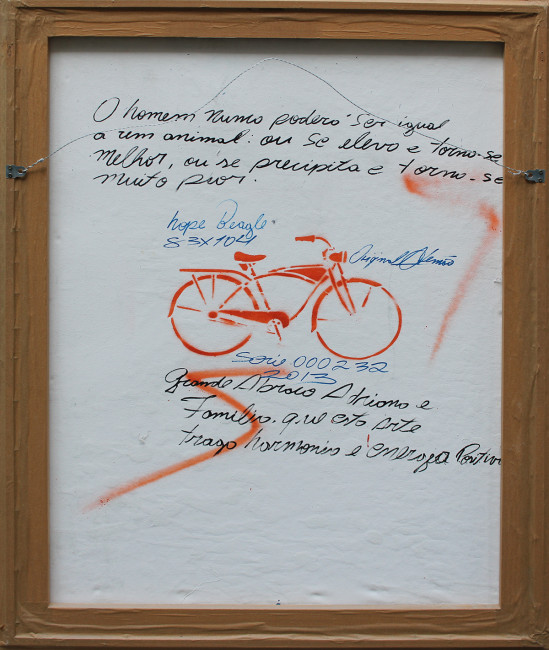 O homem numo poderó ser igual
a um animal: ou se eleva e torna-se
melhor, ou se precipita e torna-se
muito pior.
hope Beagle
83x104
Original
Serie 000232
2013
Grande Abraço Adriano e
Familia. que esta Arte
traga harmonia e energia Positiv